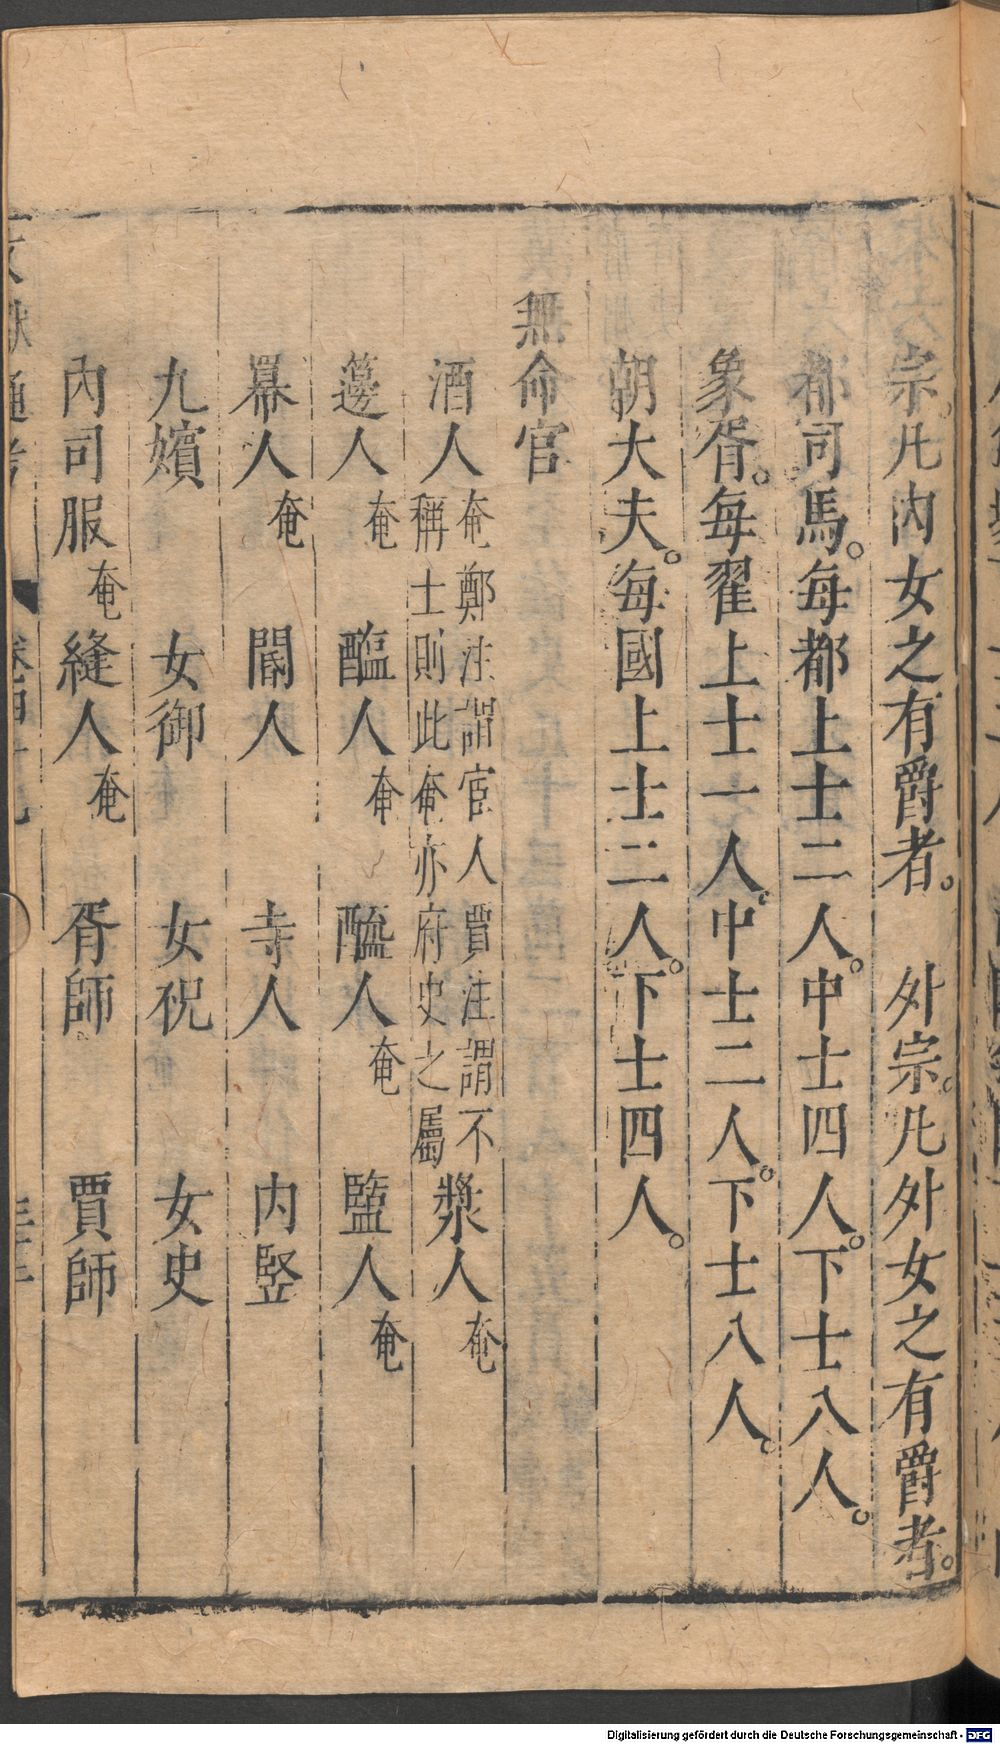 宗。凡內女之有爵者。　外宗。凡外女之有爵者。
都司馬。每都上士二人。中士四人。下士八人。
象胥。每翟上士一人。中士二人。下士八人。
朝大夫。每國上士二人。下士四人。
無命官
酒人奄鄭注謂宦人賈注謂不稱士則此奄亦府史之屬　漿人奄
籩人奄　醢人奄　醯人奄　鹽人奄
冪人奄　閽人　寺人　內竪
九嬪　女御　女祝　女史
內司服奄　縫人奄　胥師　賈師
通考
Digitalisierung gefördert durch die Deutsche Forschungsgemeinschaft - DFG